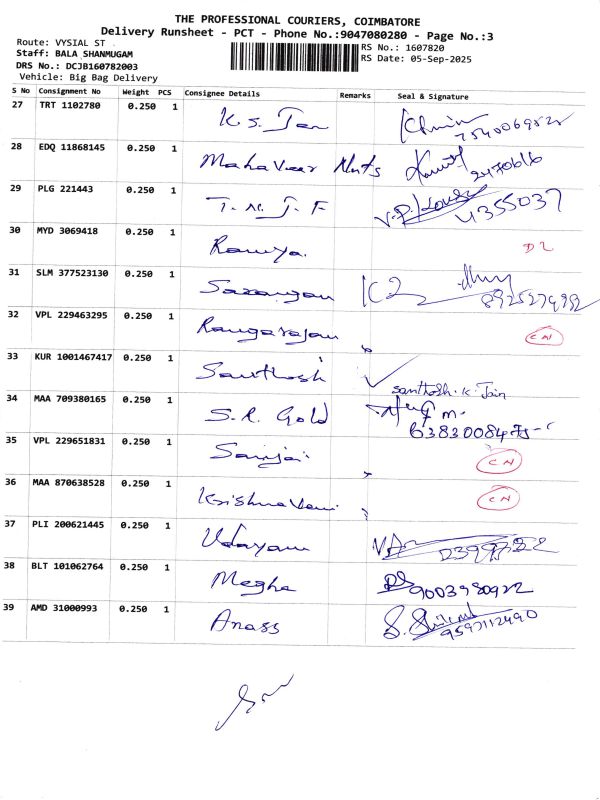 THE PROFESSIONAL COURIERS, COIMBATORE
Delivery Runsheet - PCT - Phone No.:9047080280 - Page No.:3
Route: VYSIAL ST .
RS No.: 1607820
Staff: BALA SHANMUGAM
RS Date: 05-Sep-2025
DRS No.: DCJB160782003
Vehicle: Big Bag Delivery
S No Consignment No Weight PCS Consignee Details Remarks Seal & Signature
27 TRT 1102780 0.250 1 K. S. Jan
28 EDQ 11868145 0.250 1 Mahaveer Nuts 2470616
29 PLG 221443 0.250 1 T. M. J. F 4355037
30 MYD 3069418 0.250 1 Ramya. D2
31 SLM 377523130 0.250 1 Sarangan
32 VPL 229463295 0.250 1 Rangarajan CN
33 KUR 1001467417 0.250 1 Santhosh Santhosh. K. Jain
34 MAA 709380165 0.250 1 S. R. Gold
35 VPL 229651831 0.250 1 Sanjai CN
36 MAA 870638528 0.250 1 Krishnaveni CN
37 PLI 200621445 0.250 1 Udayam
38 BLT 101062764 0.250 1 Megha 9003980922
39 AMD 31000993 0.250 1 Anass 9597112490